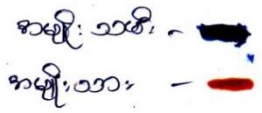 အမျိုး သမီး -
အမျိုးသား -